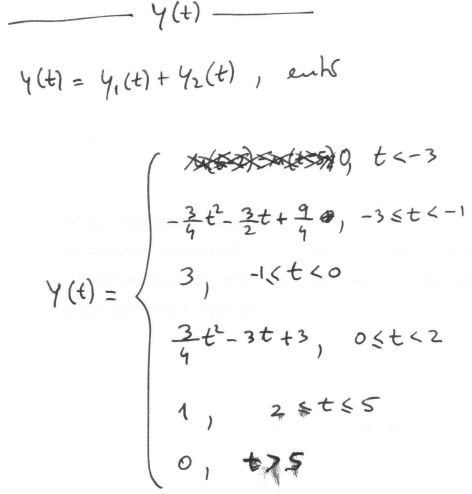 y(t)
y(t) = y₁(t) + y₂(t) ,
0, t < -3
-3/4 t² - 3/2 t + 9/4 , -3 ≤ t < -1
y(t) = { 3 , -1 ≤ t < 0
3/4 t² - 3t + 3 , 0 ≤ t < 2
1 , 2 ≤ t ≤ 5
0 , t > 5